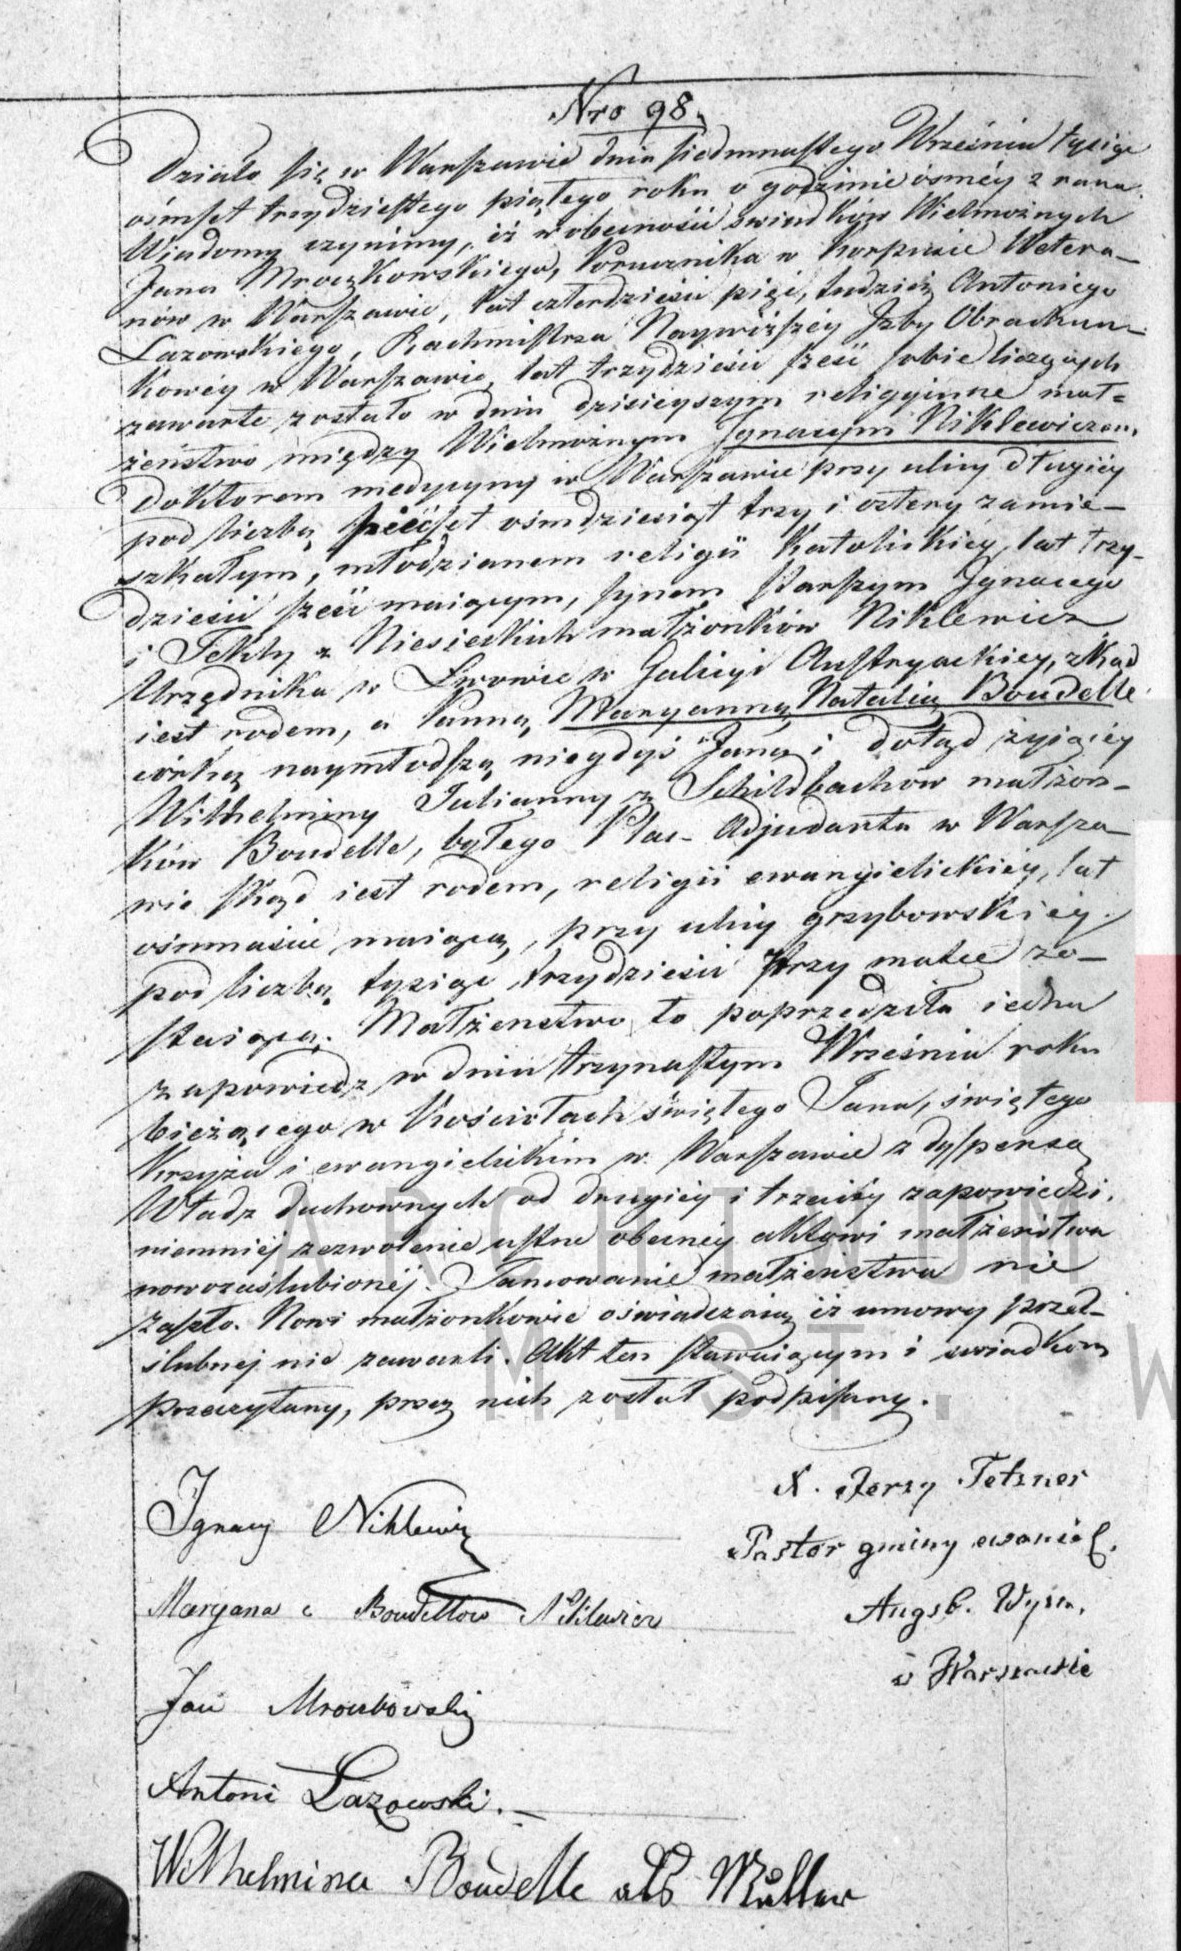 Nro 98.
Działo się w Warszawie dnia siedmnastego Września tysiąc
ośmset trzydziestego piątego roku o godzinie ósmey z rana
Wiadomo czynimy, iż w obecności świadków Wielmożnych
Jana Mroczkowskiego, Porucznika w Korpusie Wetera-
nów w Warszawie, lat czterdzieści pięć, tudzież Antoniego
Lazowskiego, Rachmistrza Naywyższéy Izby Obrachun-
kowey w Warszawie, lat trzydzieści sześć sobie liczących
zawarte zostało w dniu dzisieyszym religijne mał-
żeństwo między Wielmożnym Ignacym Niklewiczem,
Doktorem medycyny w Warszawie przy ulicy długiéy
pod liczbą pięćset ośmdziesiąt trzy i cztery zamie-
szkałym, młodzianem religii Katolickiéy, lat trzy-
dzieści sześć maiącym, synem starszym Ignacego
i Tekly z Niesieckich małżonków Niklewicz
Urzędnika w Lwowie w Galicyi Austryackiey, zkąd
iest rodem, a Panną Maryanną Natalią Boudelle
córką naymłodszą niegdyś Jana i dotąd żyiącéy
Wilhelminy Julianny z Schildbachów małżon-
ków Boudelle, byłego Plac-Adjudanta w Warsza-
wie zkąd iest rodem, religii ewangielickiéy, lat
ośmnaście maiącą, przy ulicy grzybowskiéy
pod liczbą tysiąc trzydzieści przy matce zo-
staiącą. Małżeństwo to poprzedziła iedna
zapowiedz w dniu trzynastym Września roku
bieżącego w Kościołach świętego Jana, świętego
Krzyża i ewangielickim w Warszawie z dyspensą
Władz duchownych od drugiéy i trzeciéy zapowiedzi,
niemniéj zezwolenie ustne obecnéy aktowi małżeństwa
nowozaślubionéj. Tamowanie małżeństwa nie
zaszło. Nowi małżonkowie oświadczaią iż umowy przed-
ślubnéj nie zawarli. Akt ten stawaiącym i świadkom
przeczytany, przez nich został podpisany.
Ignacy Niklewicz
X. Jerzy Tetzner
Pastor gminy ewaniel.
Maryana z Boudellow Niklewicz
Augsb. Wyzn.
w Warszawie
Jan Mroczkowski
Antoni Lazowski.
Wilhelmina Boudelle als Müller
ARCHIWUM
M. ST. W